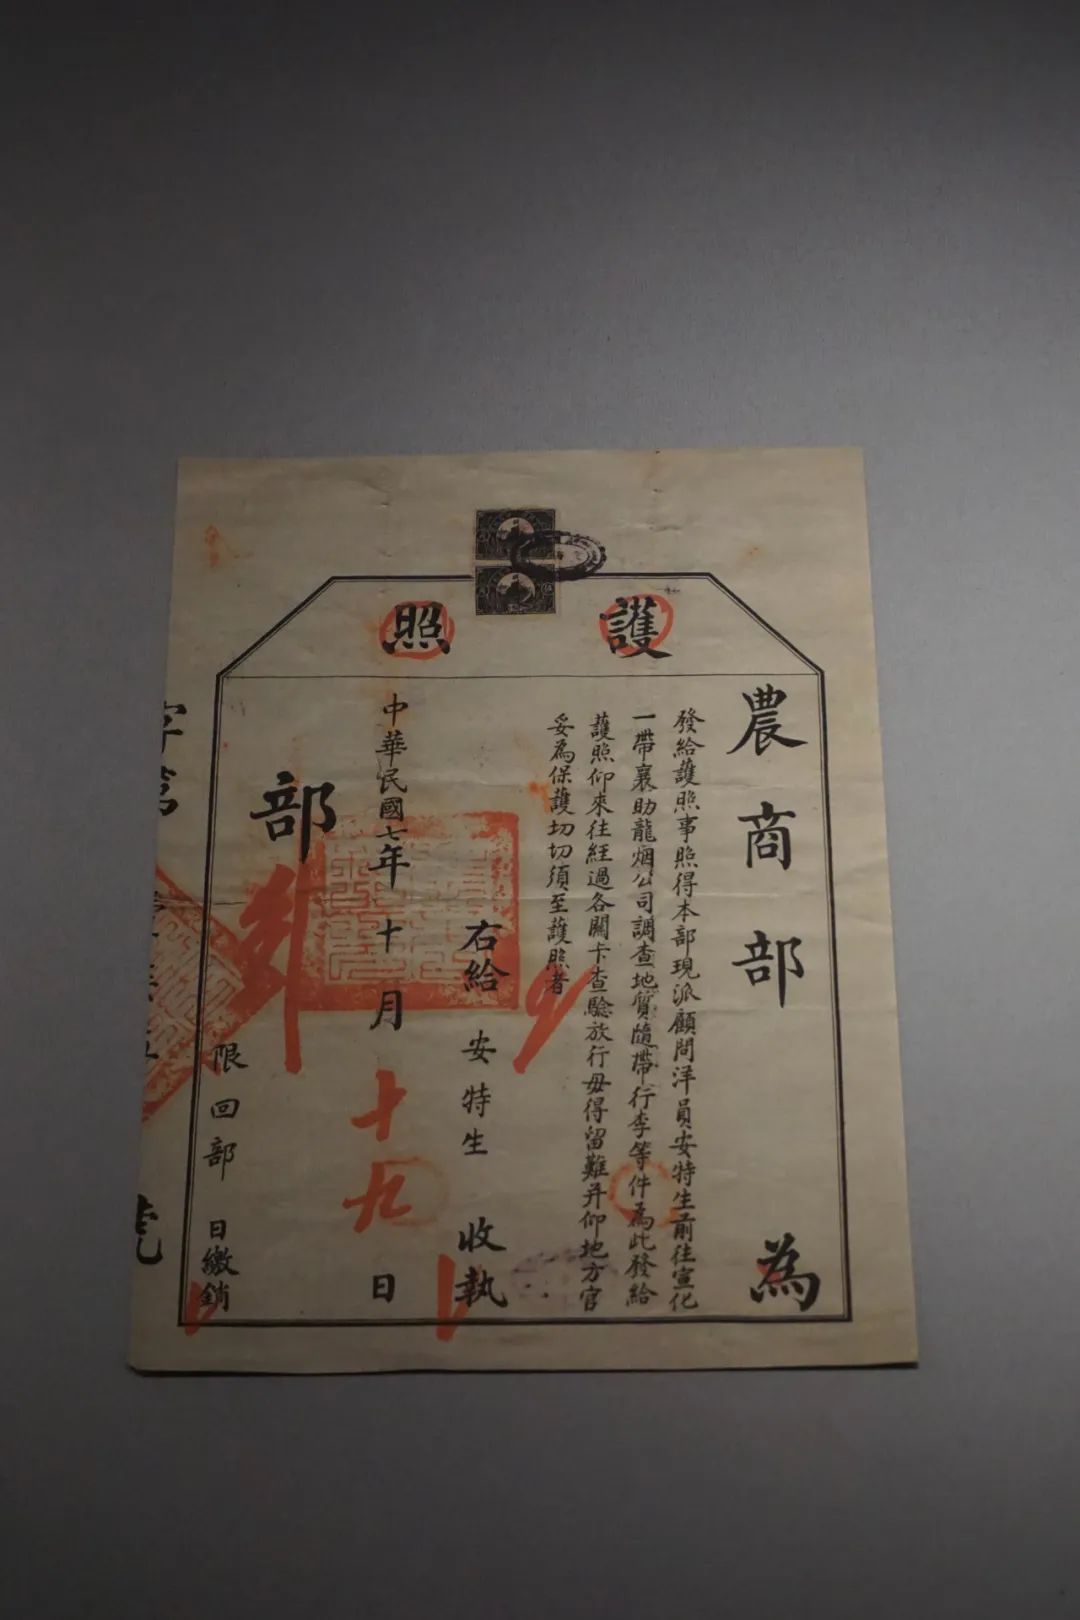 護照
農商部 為
發給護照事照得本部現派顧問洋員安特生前往宣化
一帶襄助龍烟公司調查地質隨帶行李等件為此發給
護照仰來往經過各關卡查驗放行毋得留難并仰地方官
妥為保護切切須至護照者
右給 安特生 收執
中華民國七年十月十九日
部
限回部 日繳銷
字第
號